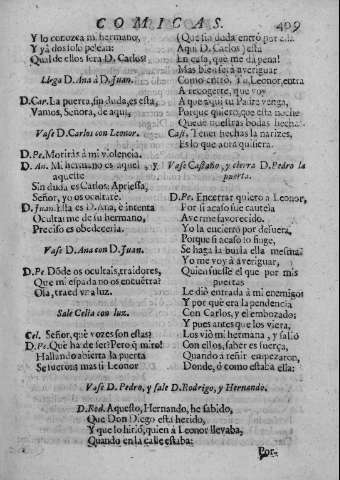 COMICAS. 409
Y lo conozca mi hermano,
Y ya dos solo pelean:
Qual de ellos será D. Carlos?
Llega D. Ana à D. Juan.
D. Car. La puerta, sin duda, es esta,
Vamos, Señora, de aqui,
Vase D. Carlos con Leonor.
D. Pe. Morirás à mi violencia.
D. An. Mi hermano es aquel, y
aqueste
Sin duda es Carlos: Apriessa,
Señor, yo os ocultare.
D. Juan. Esta es D. Ana, è intenta
Ocultarme de su hermano,
Preciso es obedecerla.
Vase D. Ana con D. Juan.
D. Pe. Dõde os ocultais, traidores,
Que mi espada no os encuẽtra?
Ola, traed una luz.
Sale Celia con luz.
Cel. Señor, què vozes son estas?
D. Pe. Què ha de ser! Pero q̃ miro!
Hallando abierta la puerta
Se fueron; mas si Leonor
(Que sin duda entrò por ella
Aqui D. Carlos) està
En casa, que me dà pena!
Mas bien serà averiguar
Como entrò. Tu, Leonor, entra
A recogerte, que voy
A que aqui tu Padre venga,
Porque quiero, que esta noche
Queden nuestras bodas hechas.
Cast. Tener hechas las narizes,
Es lo que aora quisiera.
Vase Castaño, y cierra D. Pedro la
puerta.
D. Pe. Encerrar quiero a Leonor,
Por si acaso fue cautela
Averme favorecido.
Yo la encierro por defuera,
Porque si acaso lo finge,
Se haga la burla ella mesma:
Yo me voy à averiguar,
Quien fuesse el que por mis
puertas
Le diò entrada à mi enemigo:
Y por què era la pendencia
Con Carlos, y el embozado;
Y pues antes que los viera,
Los viò mi hermana, y saliò
Con ellos, saber es fuerça,
Quando à reñir empezaron,
Donde, ò como estaba ella:
Vase D. Pedro, y sale D. Rodrigo, y Hernando.
D. Rod. Aquesto, Hernando, he sabido,
Que Don Diego està herido,
Y que lo hiriò, quien à Leonor llevaba,
Quando en la calle estaba:
Por-